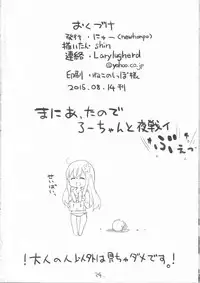 おくづけ
発行・にゅー(newhanpo)
描いたん shin
連絡・Larylugherd
@yahoo.co.jp
印刷・ねこのしっぽ様
2015.08.14刊
まにあったので
ろーちゃんと夜戦イ
ぶえっ
せいばい。
!大人の人以外は見ちゃダメです。!